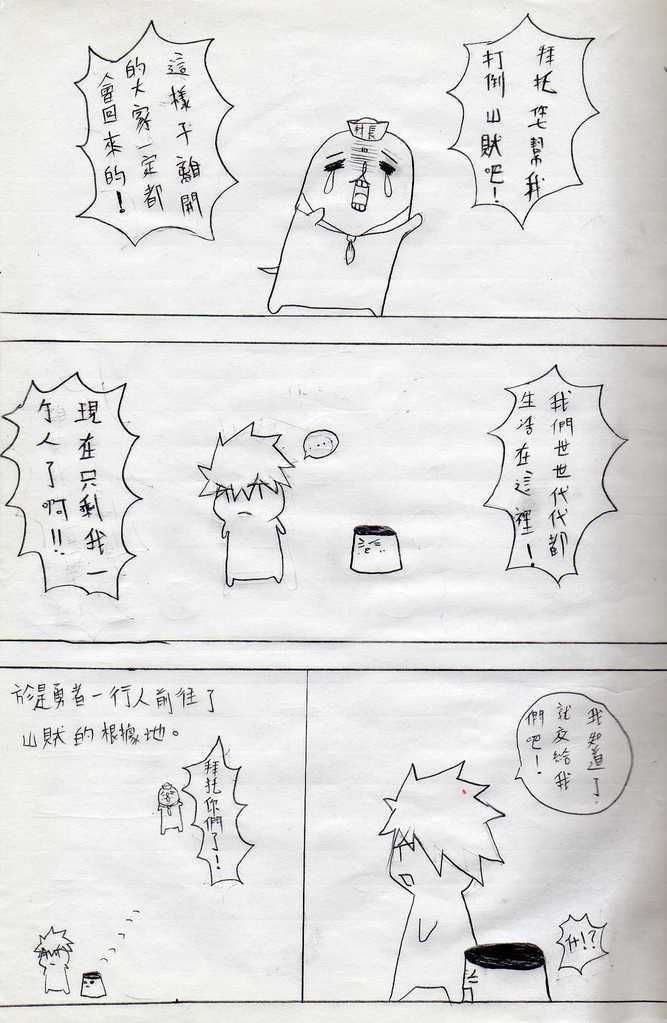 拜托您幫我
打倒山賊吧!
村長
這樣子離開
的大家一定都
會回來的!
我們世世代代都
生活在這裡!
...
現在只剩我一
个人了啊!!
我知道了.
就交給我
們吧!
什!?
於是勇者一行人前往了
山賊的根據地。
拜托你們了!